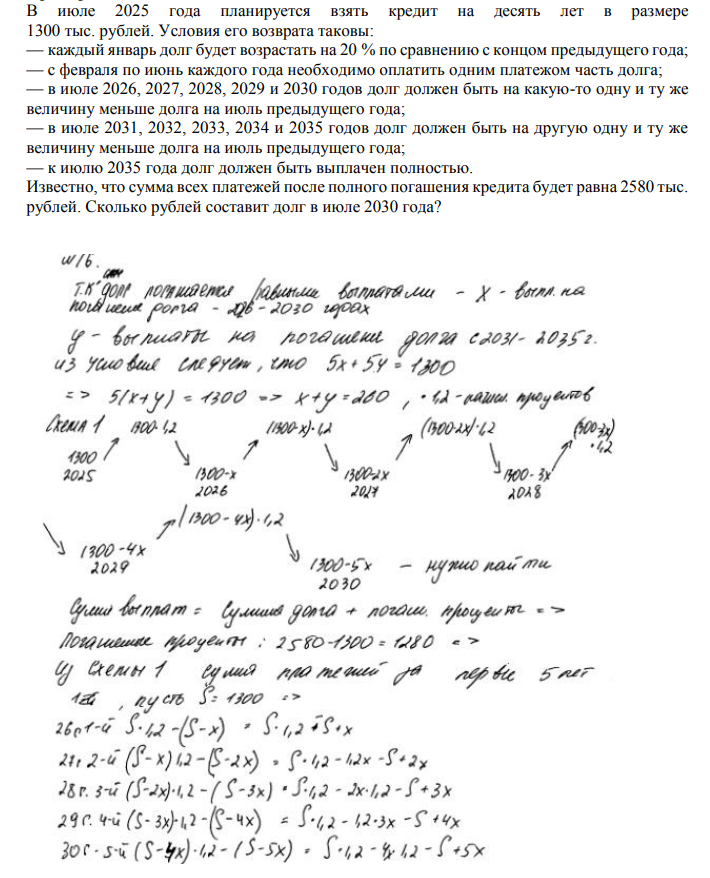 В июле 2025 года планируется взять кредит на десять лет в размере
1300 тыс. рублей. Условия его возврата таковы:
— каждый январь долг будет возрастать на 20 % по сравнению с концом предыдущего года;
— с февраля по июнь каждого года необходимо оплатить одним платежом часть долга;
— в июле 2026, 2027, 2028, 2029 и 2030 годов долг должен быть на какую-то одну и ту же
величину меньше долга на июль предыдущего года;
— в июле 2031, 2032, 2033, 2034 и 2035 годов долг должен быть на другую одну и ту же
величину меньше долга на июль предыдущего года;
— к июлю 2035 года долг должен быть выплачен полностью.
Известно, что сумма всех платежей после полного погашения кредита будет равна 2580 тыс.
рублей. Сколько рублей составит долг в июле 2030 года?
№16.
Т.к долг погашается равными выплатами - x - выпл. на
погашение долга - 2026 - 2030 годах
y - выплаты на погашени долга с 2031 - 2035 г.
из условия следует, что 5x + 5y = 1300
=> 5(x+y) = 1300 => x+y = 260, ·1,2 - процентов
Схема 1 1300·1,2 (1300-x)·1,2 (1300-2x)·1,2 (1300-3x)·1,2
1300 1300-x 1300-2x 1300-3x
2025 2026 2027 2028
(1300-4x)·1,2
1300-4x 1300-5x - нужно найти
2029 2030
Сумма выплат = Сумма долга + погаш. проценты =>
Погашенные проценты : 2580-1300=1280 =>
Из Схемы 1 сумма платежей за первые 5 лет
, пусть S = 1300 =>
26г. 1-й S·1,2-(S-x) = S·1,2 + S+x
27г. 2-й (S-x)1,2-(S-2x) = S·1,2 - 1,2x - S + 2x
28г. 3-й (S-2x)·1,2-(S-3x) = S·1,2 - 2x·1,2 - S + 3x
29г. 4-й (S-3x)·1,2-(S-4x) = S·1,2 - 1,2·3x - S + 4x
30г - 5-й (S-4x)·1,2 - (S-5x) = S·1,2 - 4x·1,2 - S + 5x